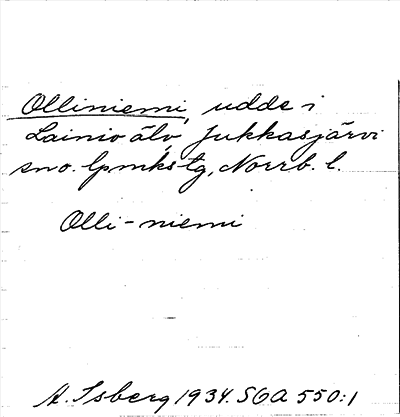 Olliniemi, udde i
Lainio älv, Jukkasjärvi
sno. lpmks-tg, Norrb. l.
Olli-niemi
H. Isberg 1934. SOA 550:1